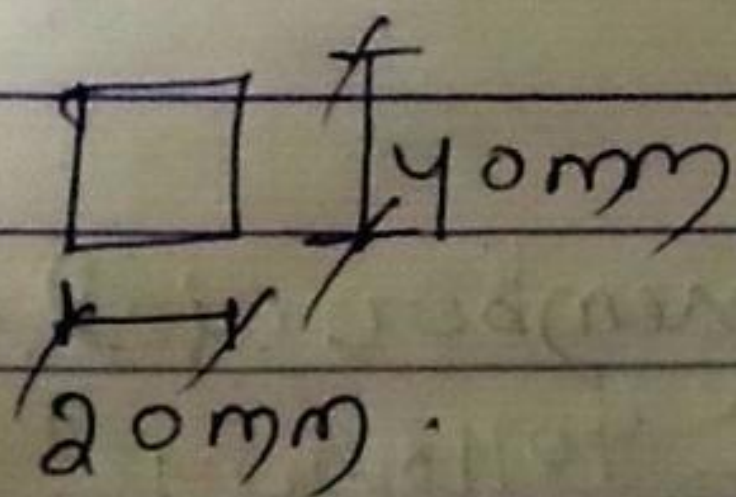 40mm
20mm.